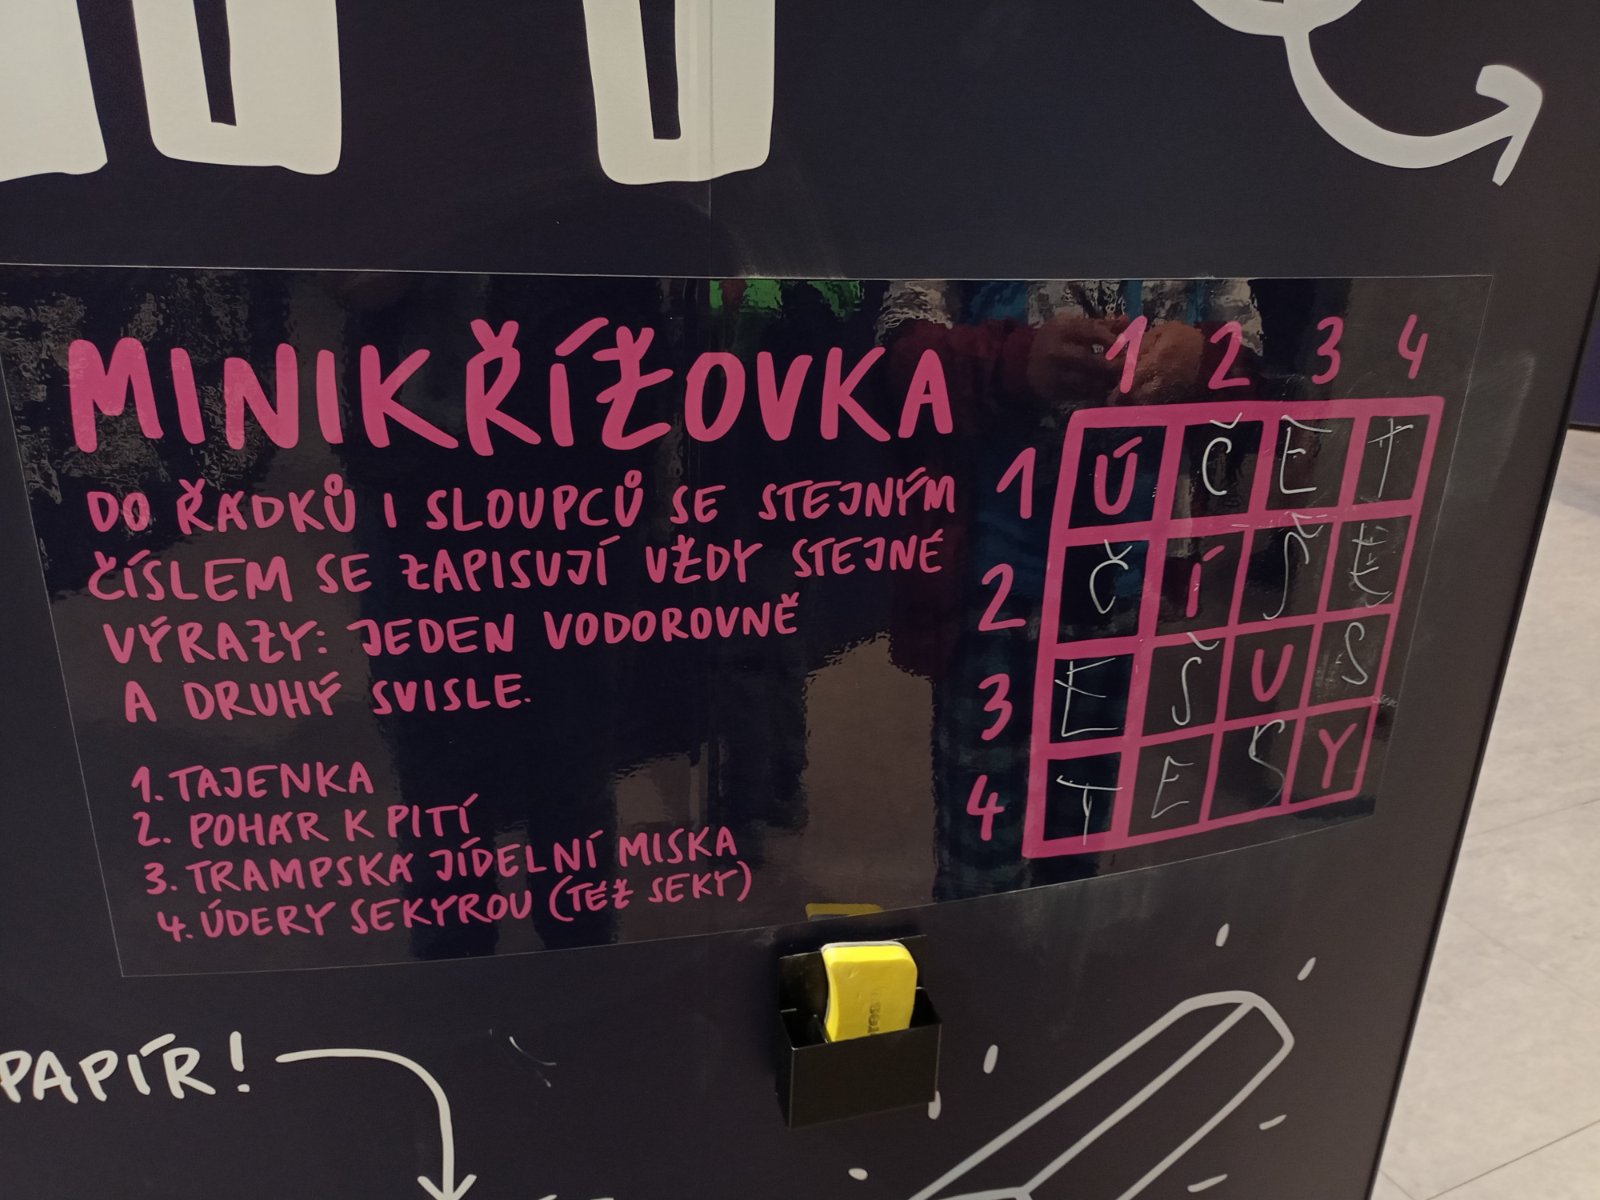 MINIKŘÍŽOVKA
DO ŘÁDKŮ I SLOUPCŮ SE STEJNÝM
ČÍSLEM SE ZAPISUJÍ VŽDY STEJNÉ
VÝRAZY: JEDEN VODOROVNĚ
A DRUHÝ SVISLE.
1. TAJENKA
2. POHÁR K PITÍ
3. TRAMPSKÁ JÍDELNÍ MISKA
4. ÚDERY SEKYROU (TÉŽ SEKY)
1 2 3 4
1 Ú Č E T
2 Č Í Š E
3 E Š U S
4 T E S Y
PAPÍR!